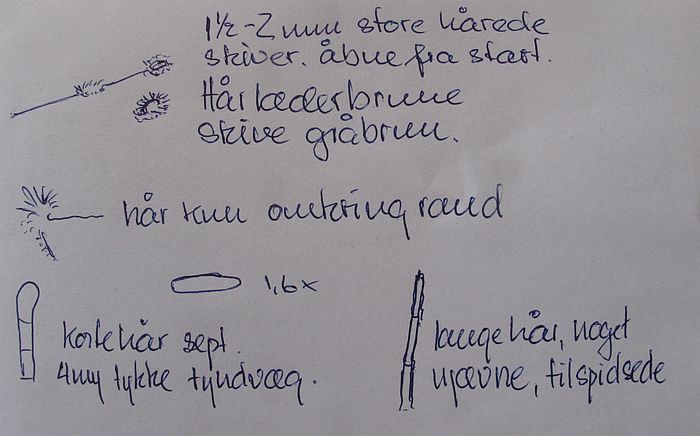 1½-2 mm store hårede
skiver. åbne fra start.
Hår læderbrune
skive gråbrun.
hår kun omkring rand
1,6x
korte hår sept.
4my tykke tyndvæg.
lange hår, noget
ujævne, tilspidsede